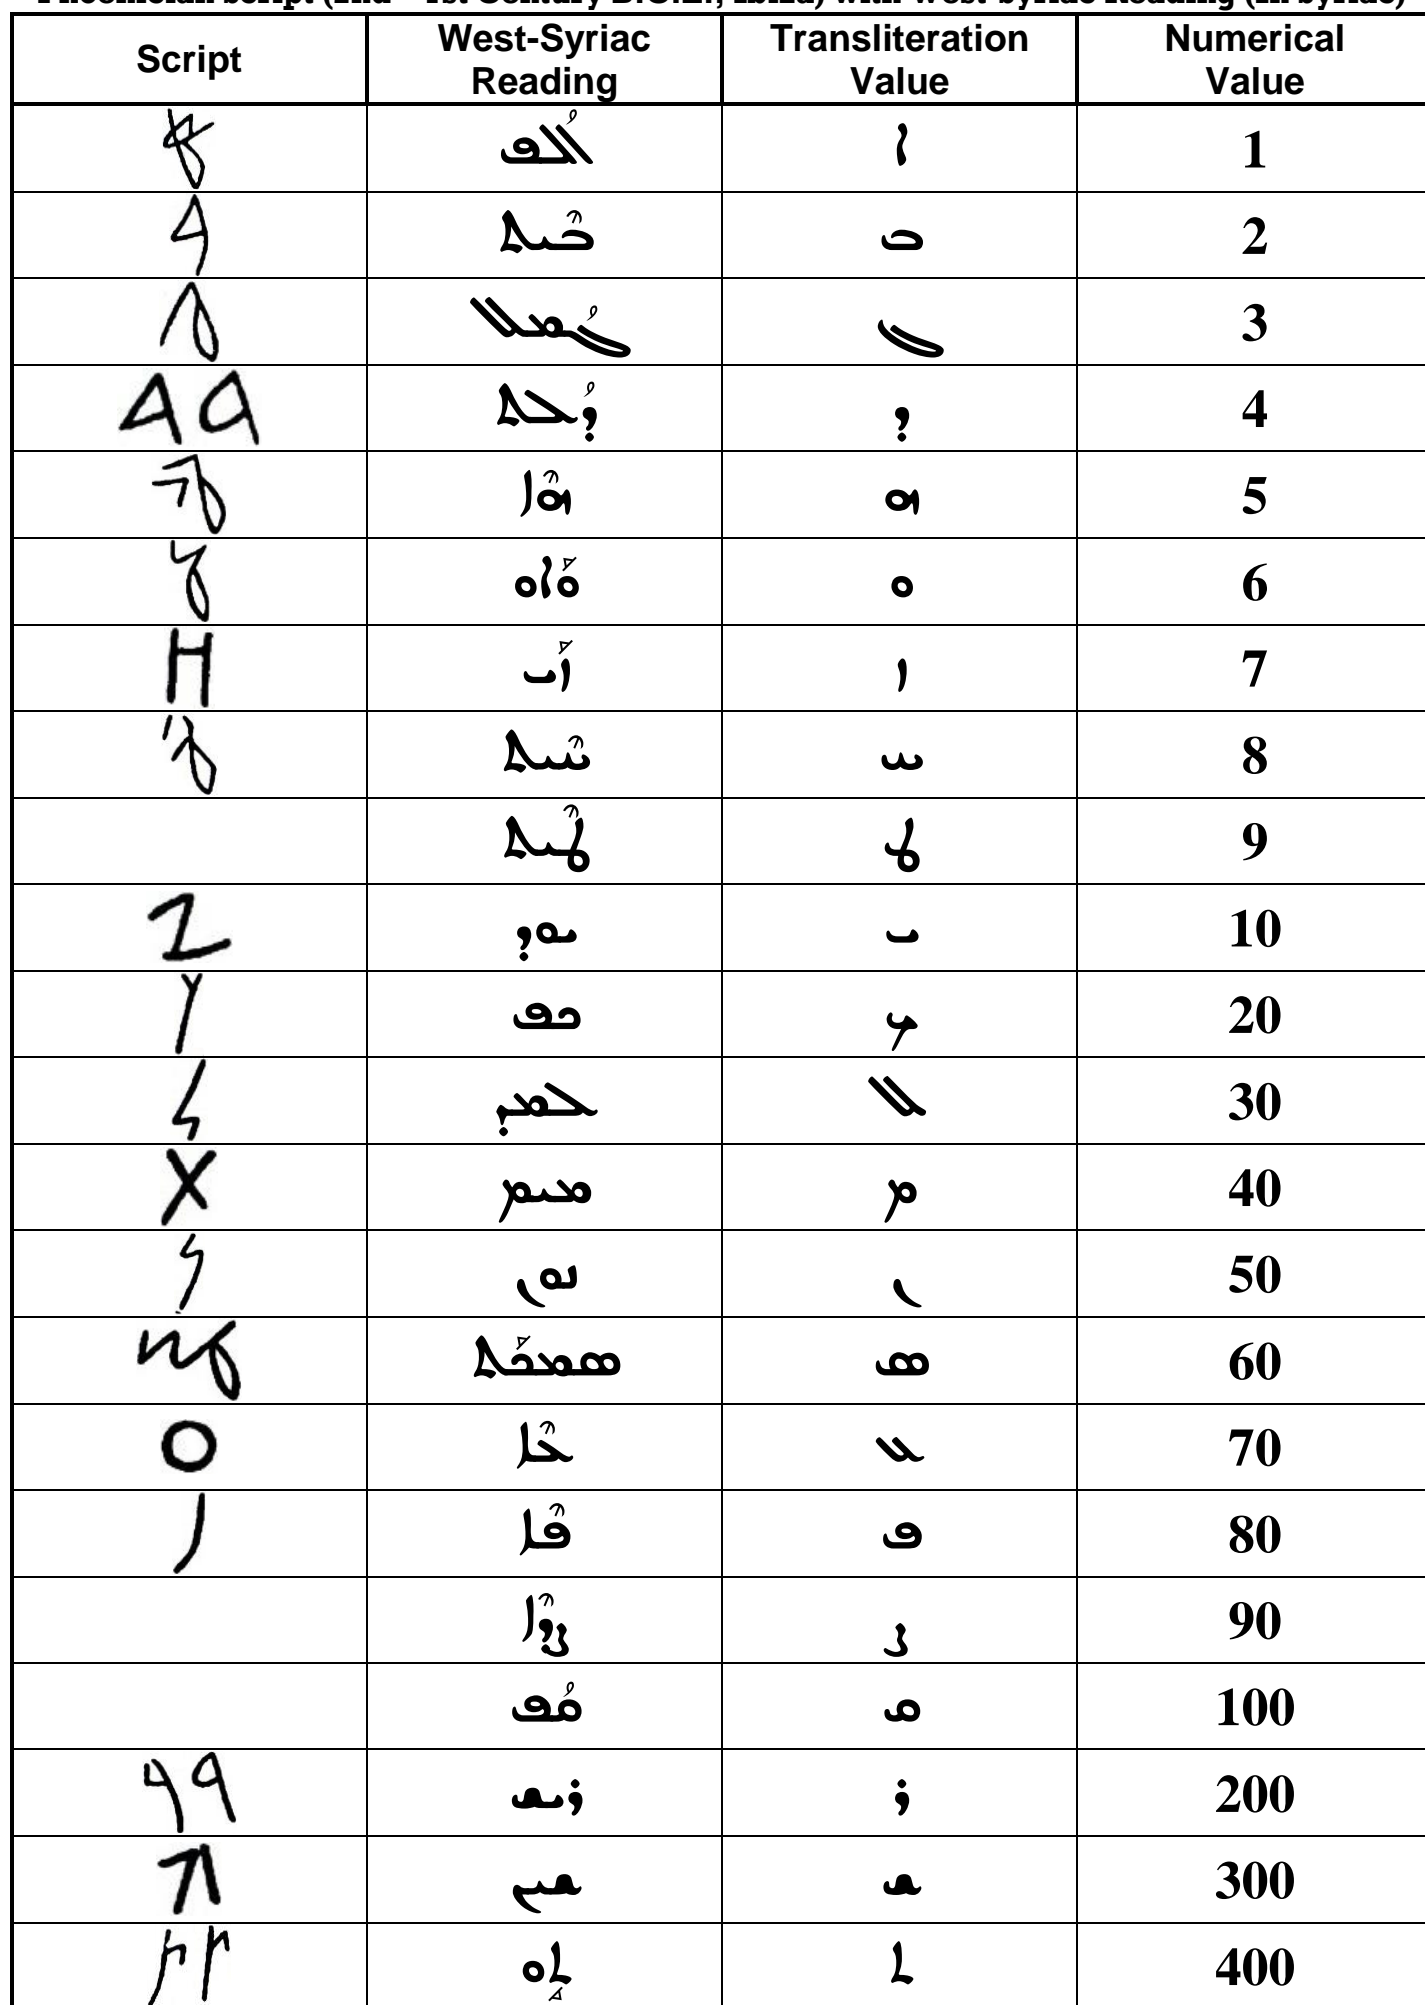 Script West-Syriac Reading Transliteration Value Numerical Value
𐤀 ܐܳܠܦ ܐ 1
𐤁 ܒܶܝܬ ܒ 2
𐤂 ܓܳܡܠ ܓ 3
𐤃 𐤃 ܕܳܠܬ ܕ 4
𐤄 ܗܶܐ ܗ 5
𐤅 ܘܰܐܘ ܘ 6
𐤆 ܙܰܝ ܙ 7
𐤇 ܚܶܝܬ ܚ 8
ܛܶܝܬ ܛ 9
𐤉 ܝܘܕ ܝ 10
𐤊 ܟܦ ܟ 20
𐤋 ܠܡܕ ܠ 30
𐤌 ܡܝܡ ܡ 40
𐤍 ܢܘܢ ܢ 50
𐤎 ܣܡܟܰܬ ܣ 60
𐤏 ܥܶܐ ܥ 70
𐤐 ܦܶܐ ܦ 80
ܨܕܶܐ ܨ 90
ܩܳܦ ܩ 100
𐤓 𐤓 ܪܝܫ ܪ 200
𐤔 ܫܝܢ ܫ 300
𐤕 𐤕 ܬܱܘ ܬ 400